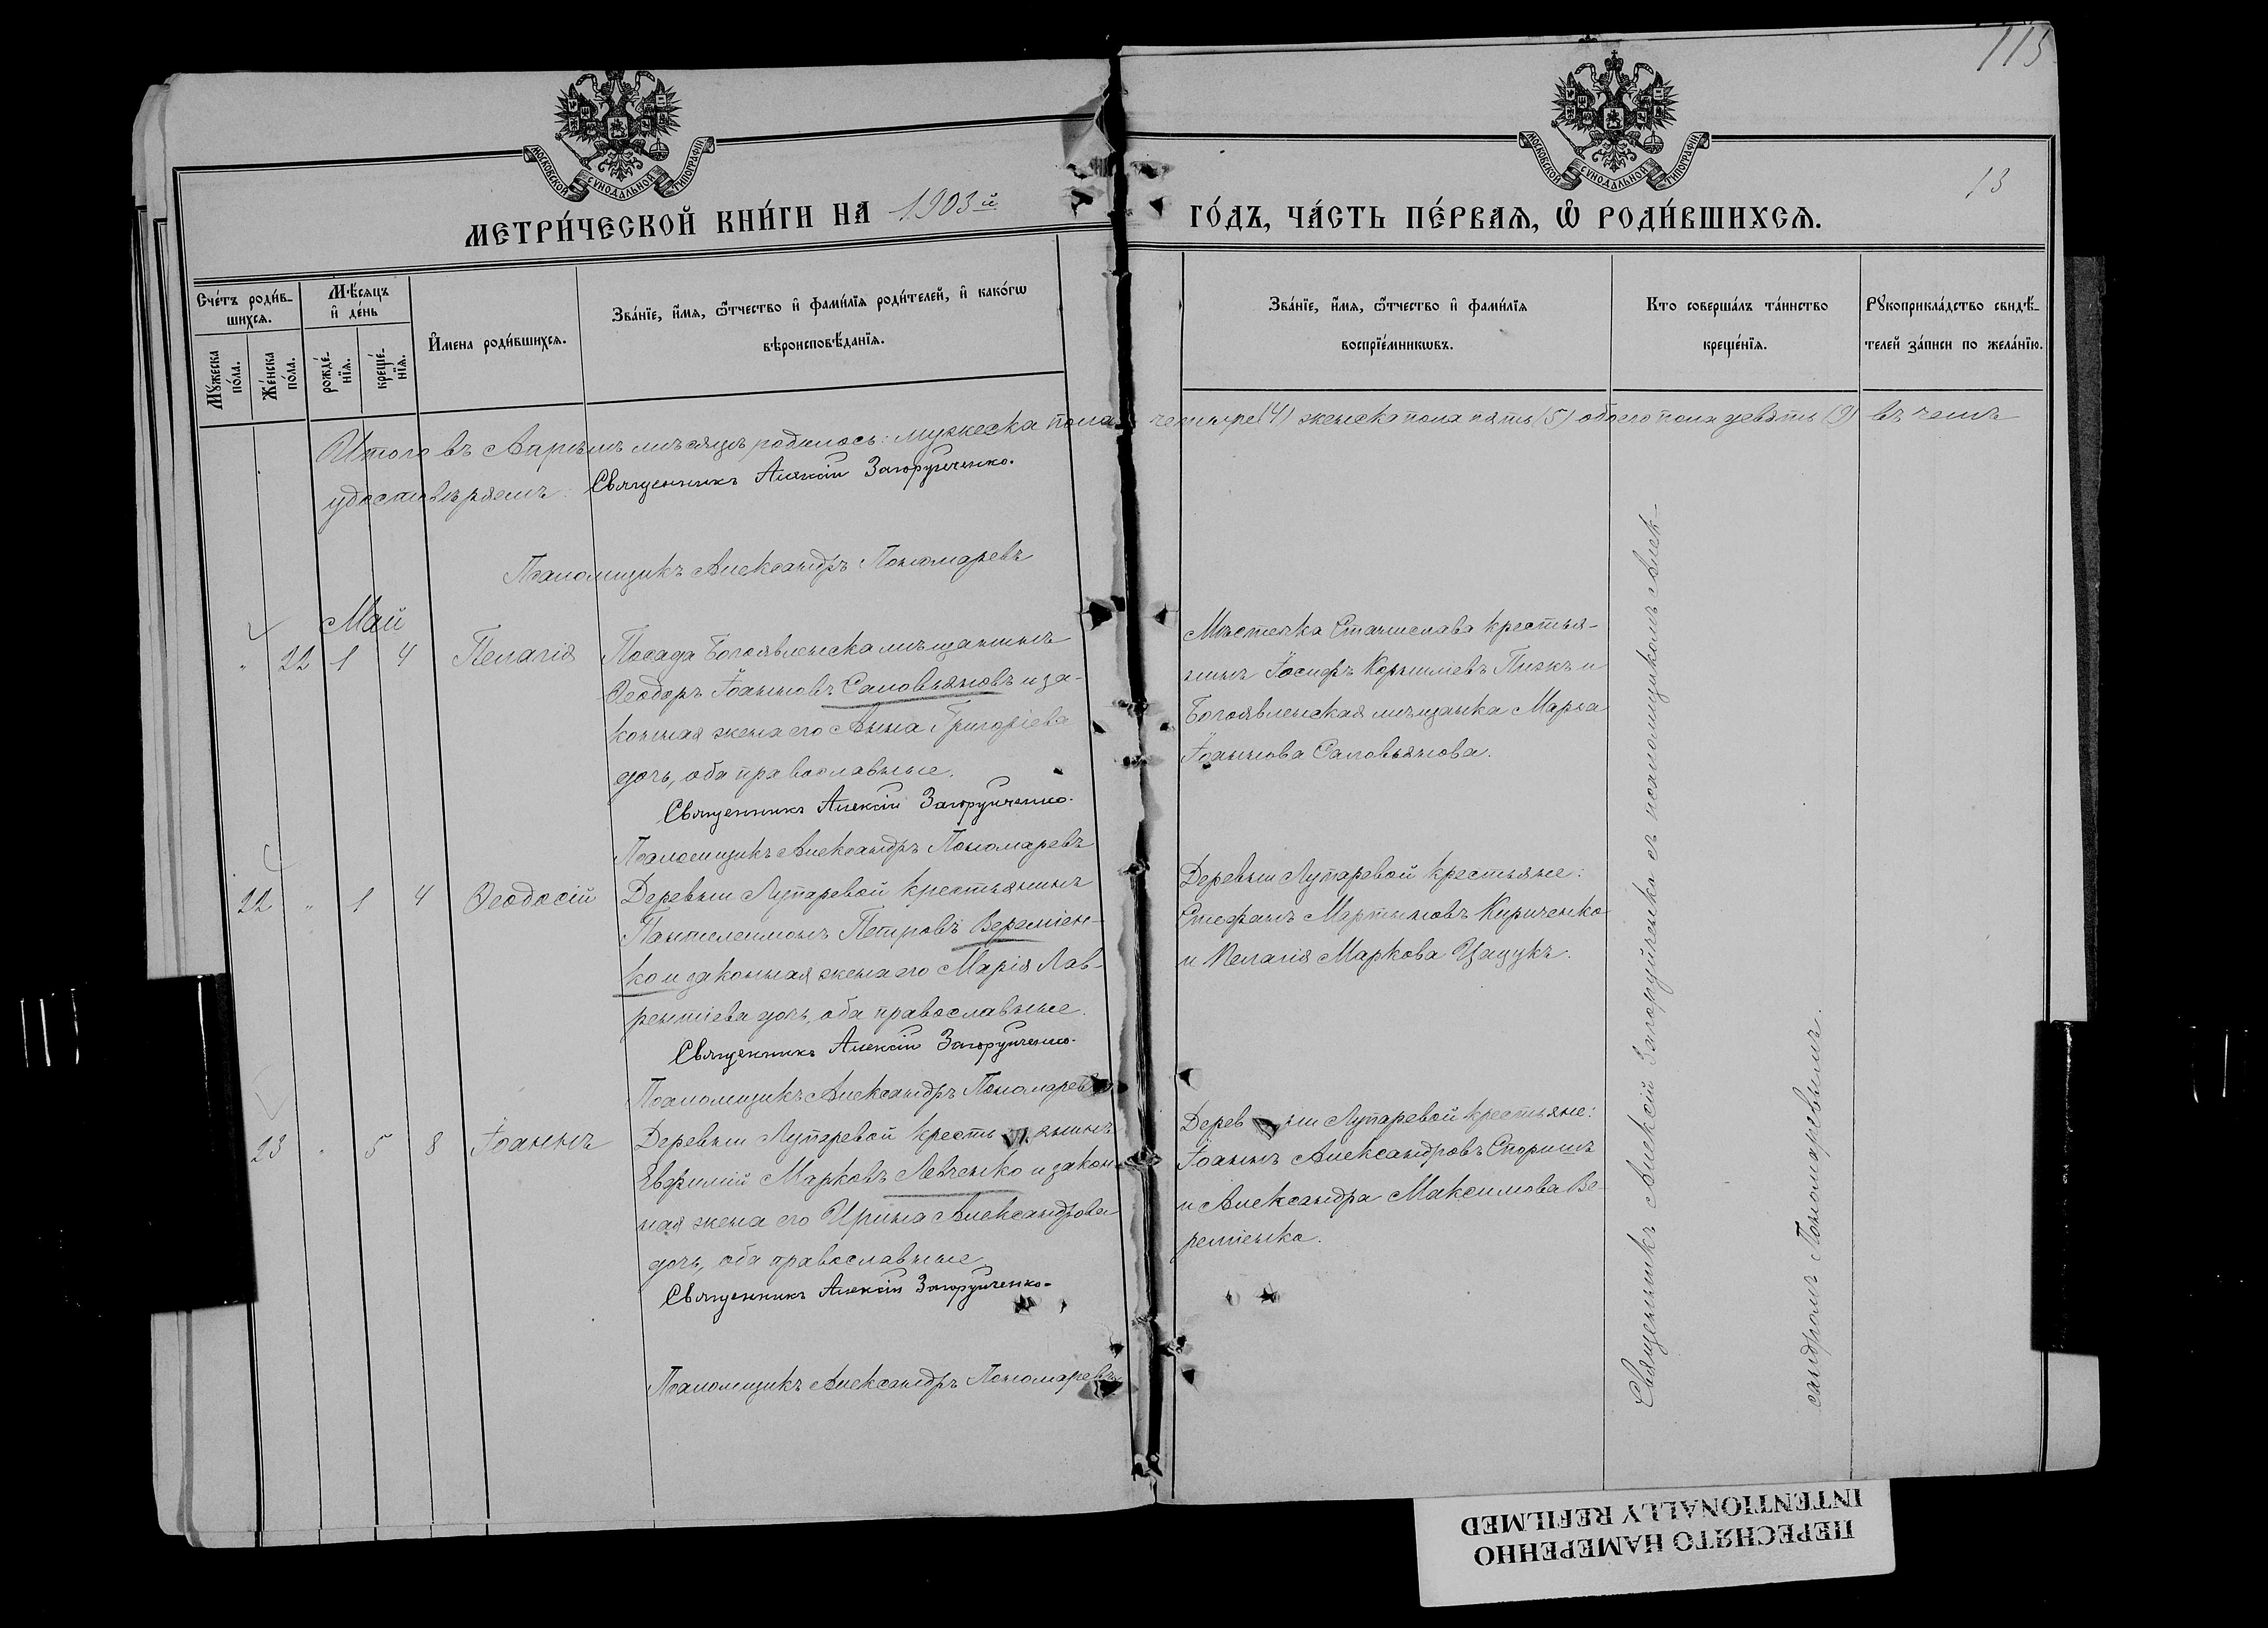 115
13
МОСКОВСКОЙ СѴНОДАЛЬНОЙ ТИПОГРАФІИ
МОСКОВСКОЙ СѴНОДАЛЬНОЙ ТИПОГРАФІИ
МЕТРИ́ЧЕСКОЙ КНИ́ГИ НА 1903й ГО́ДЪ, ЧА́СТЬ ПЕ́РВАЯ, Ѡ҆ РОДИ́ВШИХСЯ.
Сче́тъ роди́в-
шихся.
Мꙋ́жеска по́ла.
Же́нска по́ла.
Мѣ́сяцъ
и҆ де́нь
рожде́-
нїя.
креще́-
нїя.
И҆мена роди́вшихся.
Зва́нїе, и҆́мя, ѻ҆́тчество и҆ фами́лїя роди́телей, и҆ како́гѡ
вѣроисповѣ́данїя.
Зва́нїе, и҆́мя, ѻ҆́тчество и҆ фами́лїя
воспрїе́мникѡвъ.
Кто совершáлъ тáинство
креще́нїя.
Рꙋкоприкла́дство свидѣ́-
телей за́писи по жела́нїю.
Итого въ Апрѣлѣ мѣсяцѣ родилось: мужеска пола четыре (4) женска пола пять (5) обоего пола девять (9) въ чемъ
удостовѣряемъ: Священникъ Алексій Загоруйченко.
Псаломщикъ Александръ Пономаревъ
Май
" 22 1 4 Пелагія
Посада Богоявленска мѣщанинъ
Ѳеодоръ Іоанновъ Саловьяновъ и за-
конная жена его Анна Григоріева
дочь, оба православные.
Священникъ Алексій Загоруйченко.
Псаломщикъ Александръ Пономаревъ
Мѣстечка Станислава крестья-
нинъ Іосифъ Корниліевъ Пижъ и
Богоявленская мѣщанка Марѳа
Іоаннова Саловьянова.
22 " 1 4 Ѳеодосій
Деревни Лупаревой крестьянинъ
Пантелеимонъ Петровъ Веремѣен-
ко и законная жена его Марія Лав-
рентіева дочь, оба православные.
Священникъ Алексій Загоруйченко.
Псаломщикъ Александръ Пономаревъ
Деревни Лупаревой крестьяне:
Стефанъ Мартиновъ Кириченко
и Пелагія Маркова Цацукъ.
23 " 5 8 Іоаннъ
Деревни Лупаревой крестьянинъ
Евфимій Марковъ Левченко и закон-
ная жена его Ирина Александрова
дочь, оба православные
Священникъ Алексій Загоруйченко.
Псаломщикъ Александръ Пономаревъ
Деревни Лупаревой крестьяне:
Іоаннъ Александровъ Споришъ
и Александра Максимова Ве-
реміенко.
Священникъ Алексій Загоруйченко съ псаломщикомъ Алек-
сандромъ Пономаревымъ.
ПЕРЕСНЯТО НАМЕРЕННО
INTENTIONALLY REFILMED